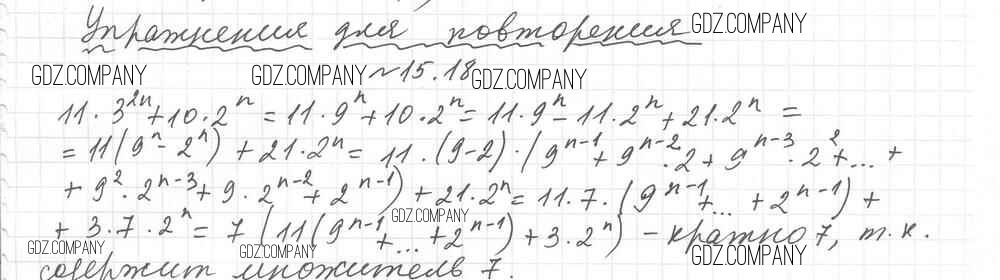 Упражнения для повторения GDZ.COMPANY
GDZ.COMPANY GDZ.COMPANY №15.18 GDZ.COMPANY
11·3²ⁿ+10·2ⁿ = 11·9ⁿ+10·2ⁿ = 11·9ⁿ-11·2ⁿ+21·2ⁿ =
= 11(9ⁿ-2ⁿ) + 21·2ⁿ = 11·(9-2)·(9ⁿ⁻¹+9ⁿ⁻²·2+9ⁿ⁻³·2²+...+
+ 9²·2ⁿ⁻³+9·2ⁿ⁻²+2ⁿ⁻¹) + 21·2ⁿ = 11·7·(9ⁿ⁻¹+...+2ⁿ⁻¹) +
+ 3·7·2ⁿ = 7(11(9ⁿ⁻¹+...+2ⁿ⁻¹)+3·2ⁿ) - кратно 7, т.к.
GDZ.COMPANY
GDZ.COMPANY GDZ.COMPANY GDZ.COMPANY
содержит множитель 7.